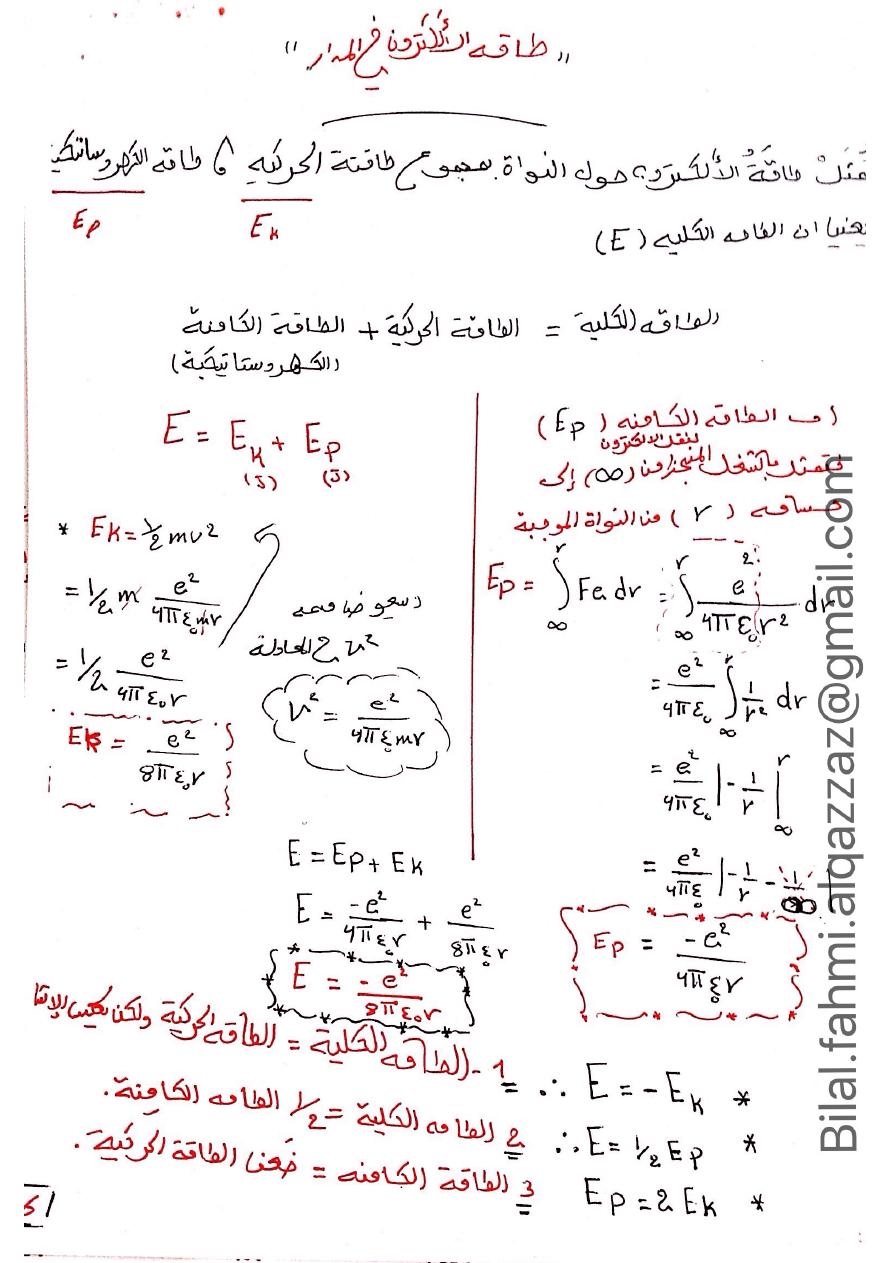 "طاقه الألكترون في المدار"
تمثل طاقة الألكترون حول النواة بمجموع طاقتة الحركيه و طاقه الكهروستاتيكية
Ep Ek
الطاقه الكليه (E)
الطاقه الكلية = الطاقة الحركية + الطاقة الكامنة
(الكهروستاتيكية)
E = Ek + Ep
(J) (J)
* Ek = 1/2 mv²
= 1/2 m e²/4πε₀mr
= 1/2 e²/4πε₀r
Ek = e²/8πε₀r
v² في المعادلة
v² = e²/4πε₀mr
الطاقة الكامنه (Ep)
لنقل الالكترون
بالشغل المنجز من (∞) إلى
مسافه (r) من النواة الموجبة
Ep = ∫∞^r Fe dr = ∫∞^r e²/4πε₀r² dr
= e²/4πε₀ ∫∞^r 1/r² dr
= e²/4πε₀ |-1/r|∞^r
= e²/4πε₀ |-1/r - 1/∞
Ep = -e²/4πε₀r
E = Ep + Ek
E = -e²/4πε₀r + e²/8πε₀r
E = -e²/8πε₀r
1- الطاقه الكلية = الطاقه الحركية ولكن بعكس الإشا
∴ E = -Ek *
2 الطاقه الكلية = 1/2 الطاقه الكامنة.
∴ E = 1/2 Ep *
3 الطاقة الكامنه = ضعف الطاقة الحركية.
Ep = 2Ek *
Bilal.fahmi.alqazzaz@gmail.com